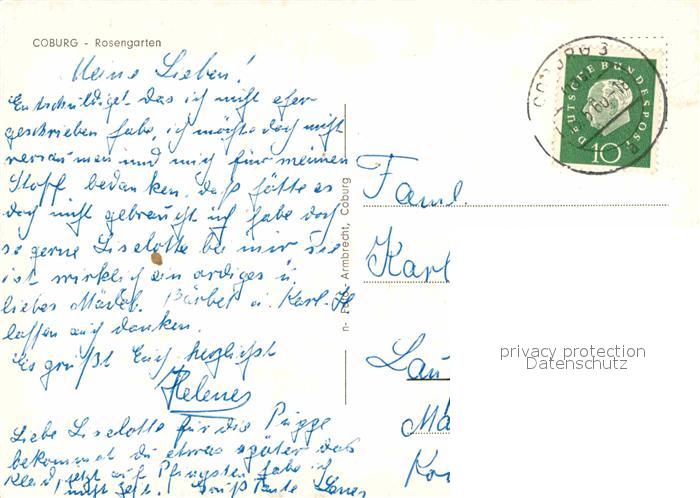 COBURG - Rosengarten
Meine Lieben!
Entschuldiget das ich nicht eher
geschrieben habe, ich möchte doch nicht
versäumen und mich für meinen
Stoff bedanken, daß hätte es
doch nicht gebraucht ich habe doch
so gerne Liselotte bei mir sie
ist wirklich ein ardiges u.
liebes Mädch. Bärbel u. Karl-H
lassen auch danken.
Es grüßt Euch herzlichst
Helene
Liebe Liselotte für die Puppe
bekommst du etwas später das
Kleid, jetzt auf Pfingsten habe ich
nicht Zeit. Gruß Tante Lene
Armbrecht, Coburg
COBURG 3
DEUTSCHE BUNDESPOST
10
Faml.
Karl
Lau
Mä
Kor
privacy protection
Datenschutz